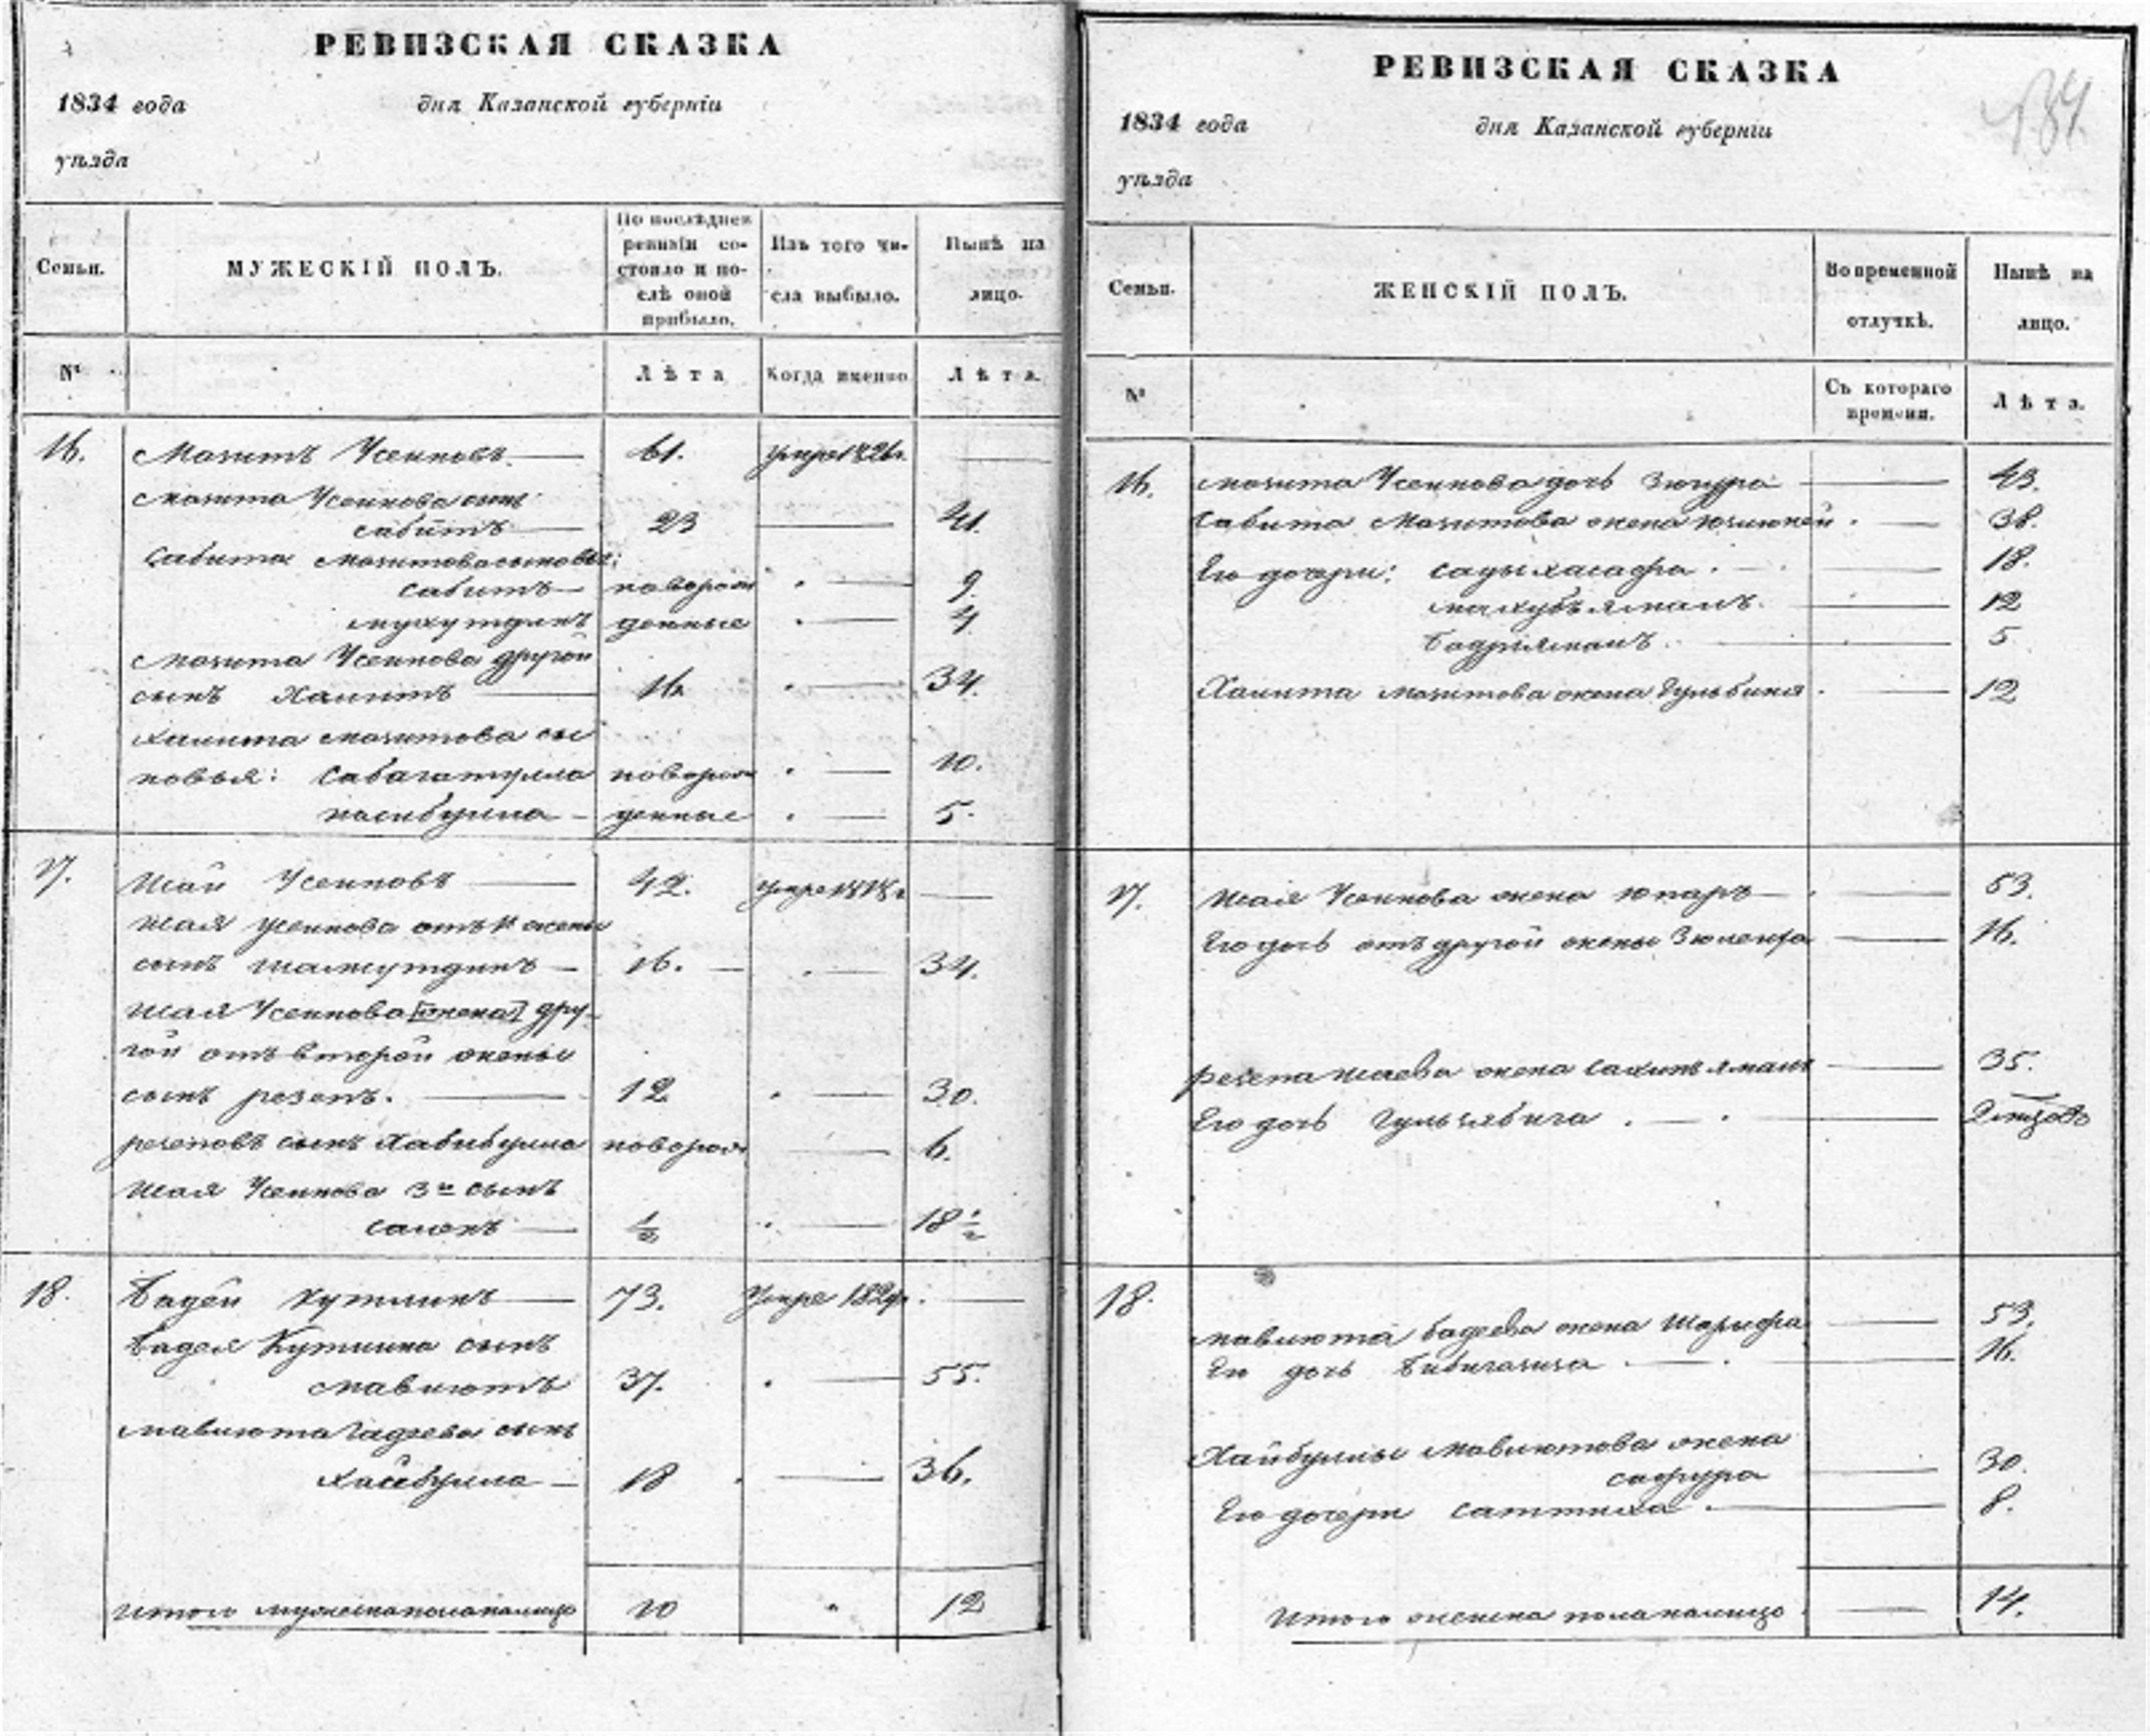 РЕВИЗСКАЯ СКАЗКА
1834 года дня Казанской губерніи
уѣзда
Семьи.
МУЖЕСКІЙ ПОЛЪ.
По послѣдней ревизіи состояло и послѣ оной прибыло.
Изъ того числа выбыло.
Нынѣ на лицо.
№
Лѣта
Когда именно
Лѣта.
16. Мазитъ Усеиновъ 61.
Мазита Усеинова сынъ
сабитъ 23 41.
Сабита Мазитова сыновья:
сабитъ новорож 9.
денные 4
Мазита Усеинова другой
сынъ Хамитъ 16 34.
Хамита мазитова сы
новья: Сабагатулла новорож 10.
насибулла денные 5.
17. Шаи Усеиновъ 42. умре 1818 г
Шая Усеинова отъ 1й жены
сынъ шамсутдинъ 16. 34.
Шая Усеинова [жена] дру-
гой отъ второй жены
сынъ резепъ. 12 30.
резеповъ сынъ Хабибулла новорож 6.
Шая Усеинова 3й сынъ
½ 18½
18. Бадей Кутлинъ 73. умре
Бадея Кутлина сынъ
мавлютъ 37. 55.
мавлюта бадеева сынъ
Хайбулла 18 36.
Итого мужеска пола налицо 10 12
РЕВИЗСКАЯ СКАЗКА
134.
1834 года дня Казанской губерніи
уѣзда
Семьи.
ЖЕНСКІЙ ПОЛЪ.
Во временной отлучкѣ.
Нынѣ на лицо.
№
Съ котораго времени.
Лѣта.
16. мазита Усеинова дочь Зюгура 43.
Сабита Мазитова жена 38.
Его дочери: 18.
махубъямалъ. 12
Бадріямалъ. 5
Хамита мазитова жена Гульбика 12
17. Шая Усеинова жена Юпаръ 53.
Его дочь отъ другой жены 16.
резепа шаева жена 35.
Его дочь
18.
мавлюта бадеева жена Шарифа 53.
Его дочь 16.
Хайбуллы мавлютова жена
сафура 30.
Его дочери саттиха 8.
Итого женска пола налицо 14.